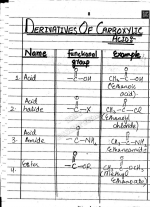 DERIVATIVES OF CARBOXYLIC
ACIDS
Name Functional Example
group
O O
1. Acid -C-OH CH₃-C-OH
(Ethanoic
acid)
Acid O O
2. halide -C-X CH₃-C-Cl
(Ethanoyl
chloride)
Acid O O
3. Amide -C-NH₂ CH₃-C-NH₂
(Ethanamide)
O O
4. Ester -C-OR CH₃-C-OCH₃
(Methyl
Ethanoate)